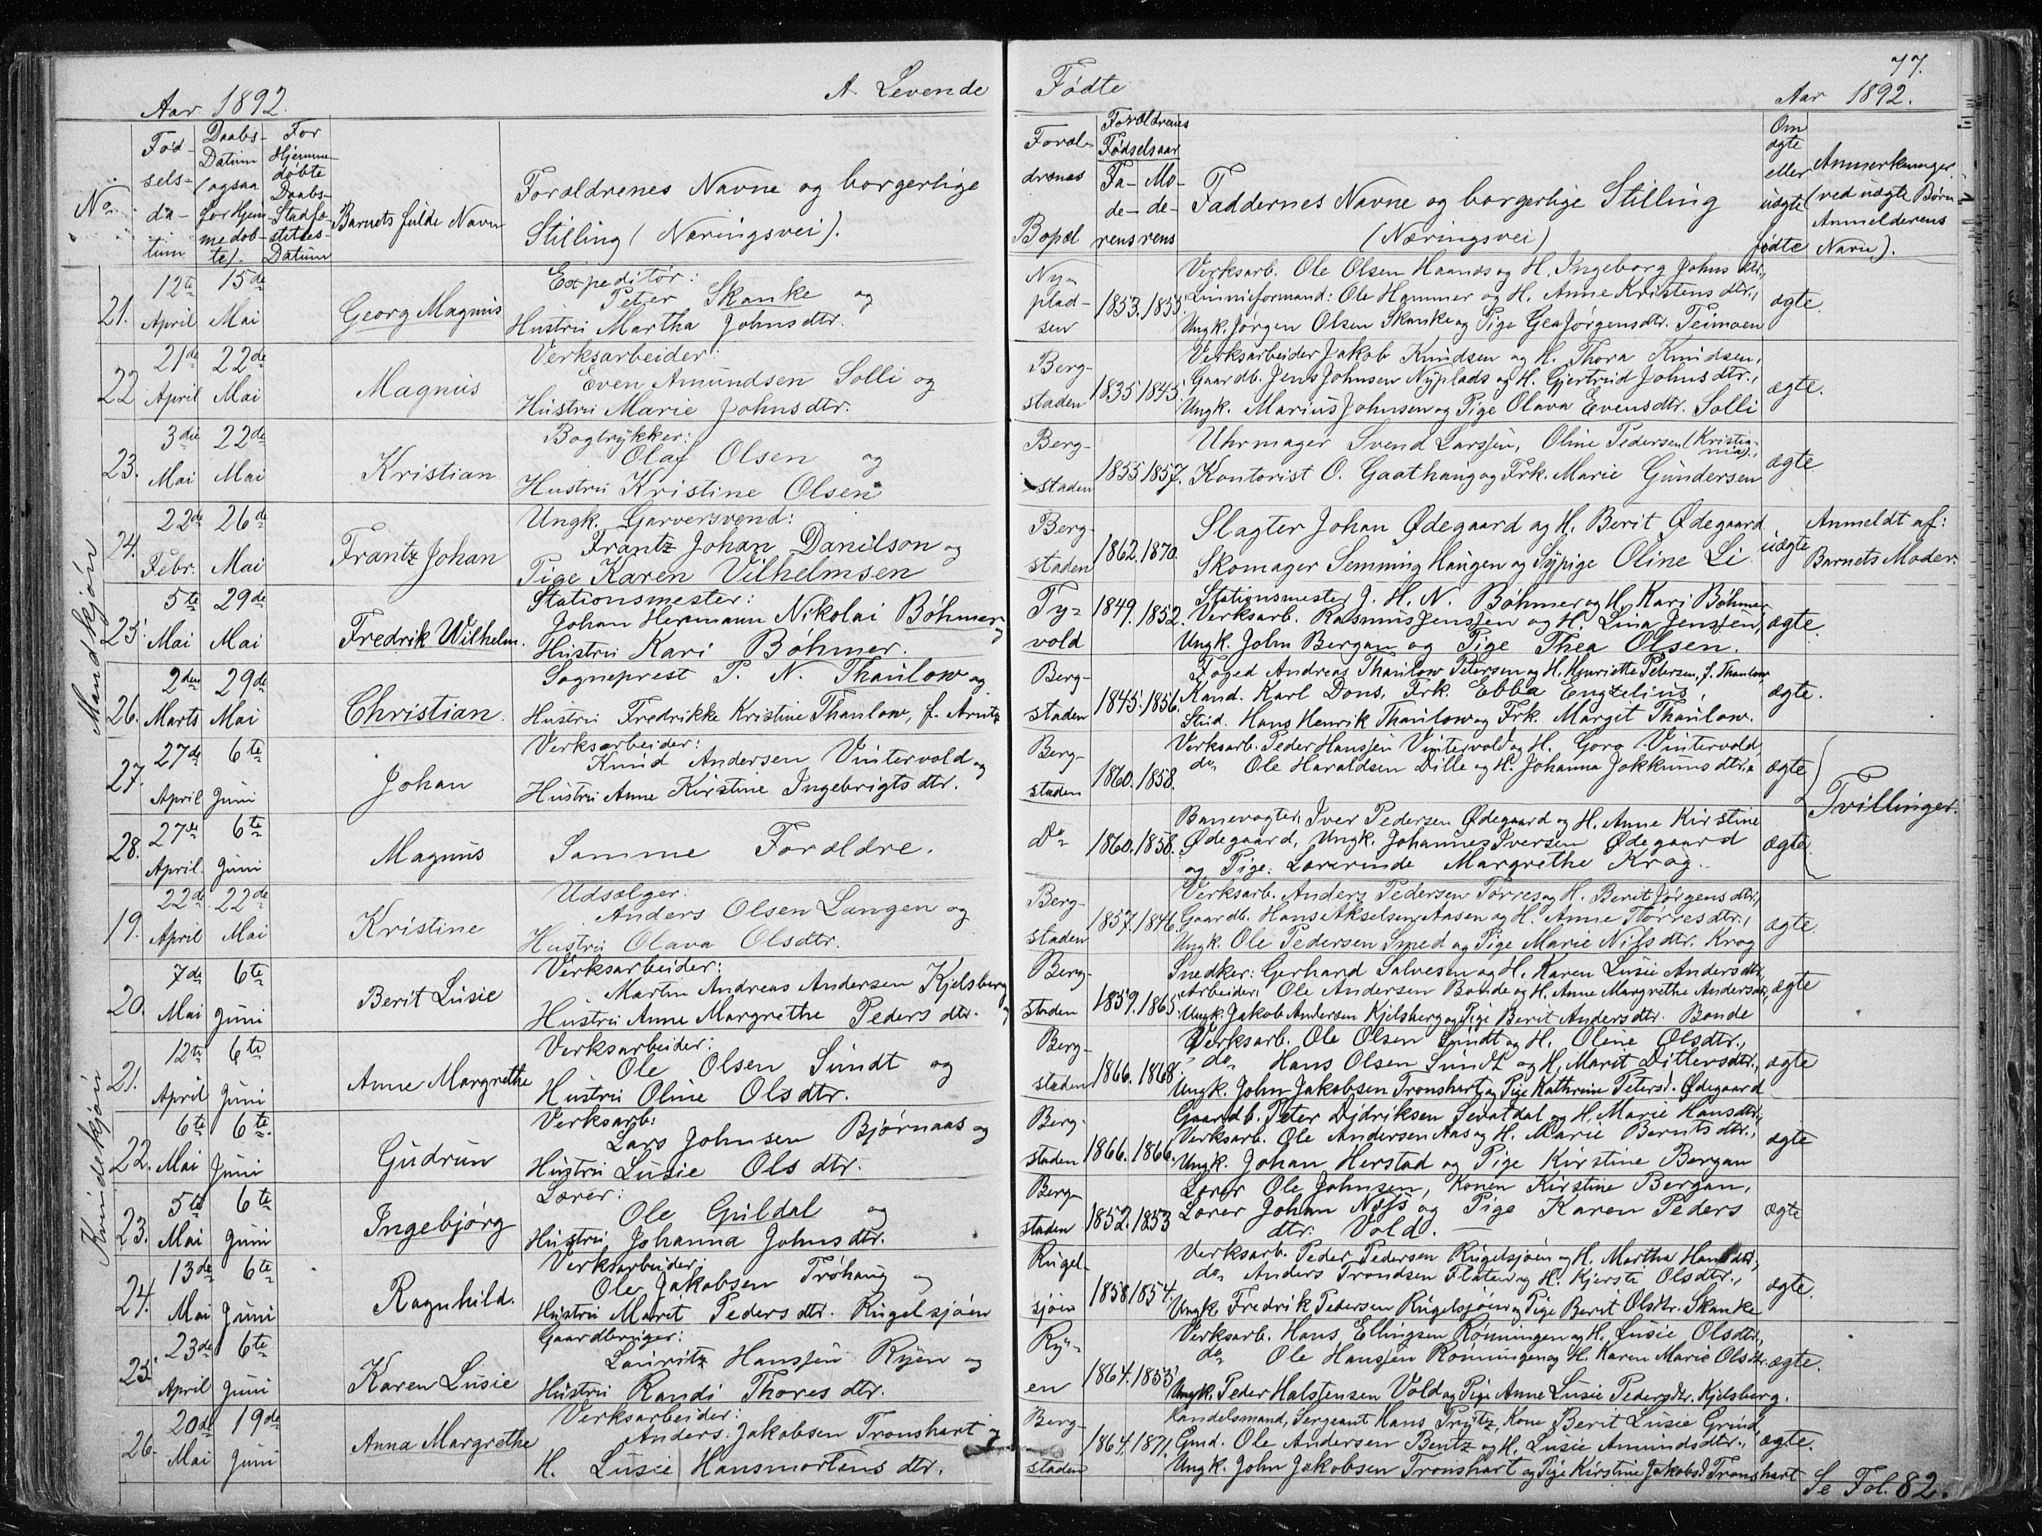 Aar 1892.
A. Levende
Fødte
77.
Aar 1892.
No
Fød-
sels-
da-
tum
Daabs-
Datum
(ogsaa
for Hjem
medøb-
te).
For
Hjemme-
døbte
Daabs-
Stadfæ-
stelses-
Datum
Barnets fulde Navn
Forældrenes Navne og borgerlige
Stilling (Næringsvei).
Foræl-
drenes
Bopæl
Forældrenes
Fødselsaar
Fa-
de-
rens
Mo-
de-
rens
Faddernes Navne og borgerlige Stilling
(Næringsvei)
Om
ægte
eller
uægte
fødte
Anmerkninger
(ved uægte Børn
Anmelderens
Navn).
Mandkjøn
21.
12te
April
15de
Mai
Georg Magnus
Expeditør:
Peter Skanke og
Hustru Martha Johnsdtr.
Ny-
plad-
sen
1853. 1855.
Verksarb. Ole Olsen Haanes og H. Ingeborg Johnsdtr.,
Linnieformand: Ole Hammer og H. Anne Kristensdtr.,
Ungk. Jørgen Olsen Skanke og Pige Gea Jørgensdtr. Teimoen
ægte.
22
21de
April
22de
Mai
Magnus
Verksarbeider:
Even Amundsen Solli og
Hustru Marie Johnsdtr.
Berg-
staden
1835. 1845.
Verksarbeider Jakob Knudsen og H. Thora Knudsen,
Gaardb. Jens Johnsen Nyplads og H. Gjertrud Johnsdtr.,
Ungk. Marius Johnsen og Pige Olava Evensdtr. Solli
ægte.
23.
3die
Mai
22de
Mai
Kristian
Bogtrykker:
Olaf Olsen og
Hustru Kristine Olsen
Berg-
staden
1855. 1857.
Uhrmager Svend Larssen, Oline Pedersen (Kristia-
nia),
Kontorist O. Gaathaug og Frk. Marie Gundersen
ægte
24.
22de
Febr.
26de
Mai
Frantz Johan
Ungk. Garversvend:
Frantz Johan Danilson og
Pige Karen Vilhelmsen
Berg-
staden
1862. 1870.
Slagter Johan Ødegaard og H. Berit Ødegaard
Skomager Semming Haugen og Sypige Oline Li
uægte
Anmeldt af:
Barnets Moder.
25.
5te
Mai
29de
Mai
Fredrik Wilhelm.
Stationsmester:
Johan Hermann Nikolai Bøhmer og
Hustru Kari Bøhmer.
Ty-
vold
1849. 1852.
Stationsmester J. H. N. Bøhmer og H. Kari Bøhmer
Verksarb. Rasmus Jenssen og H. Lina Jenssen,
Ungk. John Bergan og Pige Thea Olsen.
ægte.
26.
2den
Marts
29de
Mai
Christian.
Sogneprest P. N. Thaulow og
Hustru Fredrikke Kristine Thaulow, f. Arntz
Berg-
staden
1845. 1856.
Foged Andreas Thaulow Petersen og H. Henriette Petersen, f. Thaulow,
Kand. Karl Dons, Frk. Ebba Engzelius,
Stud. Hans Henrik Thaulow og Frk. Margit Thaulow.
ægte.
27.
27de
April
6te
Juni
Johan
Verksarbeider:
Knud Andersen Vintervold og
Hustru Anne Kirstine Ingebrigtsdtr.
Berg-
staden
1860. 1858.
Verksarb. Peder Hanssen Vintervold og H. Goro Vintervold,
do. Ole Haraldsen Dille og H. Johanna Jokkumsdtr.
ægte
Tvillinger.
28.
27de
April.
6te
Juni
Magnus
Samme Forældre.
do
1860. 1858.
Banevogter Iver Pedersen Ødegaard og H. Anne Kirstine
Ødegaard, Ungk. Johannes Iversen Ødegaard
og Pige: Lærerinde Margrethe Krog.
ægte.
Kvindekjøn
19.
22de
April
22de
Mai
Kristine
Udsælger:
Anders Olsen Langen og
Hustru Olava Olsdtr.
Berg-
staden
1857. 1846.
Verksarb. Anders Pedersen Torres og H. Berit Jørgensdtr.,
Gaardb. Hans Akselsen Aasen og H. Anne Torresdtr.,
Ungk. Ole Pedersen Smed og Pige Marie Nilsdtr. Krog
ægte.
20.
7de
Mai
6te
Juni
Berit Lusie
Verksarbeider:
Martin Andreas Andersen Kjelsberg og
Hustru Anne Margrethe Pedersdtr.
Berg-
staden
1859. 1865.
Snedker: Gerhard Salvesen og H. Karen Lusie Andersdtr.,
Arbeider: Ole Andersen Bonde og H. Anne Margrethe Andersdtr.,
Ungk. Jakob Andersen Kjelsberg og Pige Berit Andersdtr. Bonde
ægte
21.
12te
April
6te
Juni
Anne Margrethe
Verksarbeider:
Ole Olsen Sundt og
Hustru Oline Olsdtr.
Berg-
staden
1866. 1868.
Verksarb. Ole Olsen Sundt og H. Oline Olsdtr.,
do. Hans Olsen Sundt og H. Marit Ditlevsdtr.,
Ungk. John Jakobsen Tronshart og Pige Kathrine Petersd. Ødegaard
ægte
22.
6te
Mai
6te.
Juni
Gudrun
Verksarb:
Lars Johnsen Bjørnaas og
Hustru Lusie Olsdtr.
Berg-
staden
1866. 1866.
Gaardb. Peter Didriksen Sevatdal og H. Marie Hansdtr.,
Verksarb. Ole Andersen Aas og H. Marie Berntsdtr.,
Ungk. Johan Herstad og Pige Kirstine Bergan
ægte
23.
5te
Mai
6te
Juni
Ingebjørg
Lærer:
Ole Guldal og
Hustru Johanna Johnsdtr.
Berg-
staden
1852. 1853
Lærer Ole Johnsen, Konen Kirstine Bergan,
Lærer Johan Næss og Pige Karen Peders
dtr. Vold.
ægte
24.
13de
Mai
6te
Juni
Ragnhild.
Verksarbeider:
Ole Jakobsen Trøhaug og
Hustru Marit Pedersdtr. Rugelsjøen
Rugel-
sjøen
1858. 1854.
Verksarb. Peder Pedersen Rugelsjøen og H. Martha Hansdtr.,
do. Anders Trondsen Flaten og H. Kjersti Olsdtr.,
Ungk. Fredrik Pedersen Rugelsjøen og Pige Berit Olsdtr. Skanke
ægte.
25.
23de
April
6te
Juni
Karen Lusie
Gaardbruger:
Lauritz Hanssen Ryen og
Hustru Randi Thoresdtr.
Ry-
en
1864. 1853.
Verksarb. Hans Ellingsen Rønningen og H. Lusie Olsdtr.,
do. Ole Hanssen Rønningen og H. Karen Marie Olsdtr.
Ungk. Peder Halstensen Vold og Pige Anne Lusie Pedersdtr. Kjelsberg.
ægte.
26.
20de
Mai
19de
Juni
Anna Margrethe
Verksarbeider:
Anders Jakobsen Tronshart og
H. Lusie Hansmortensdtr.
Berg-
staden
1864. 1871.
Handelsmand, Sergeant Hans Prytz, Kone Berit Lusie Grind,
Gmd. Ole Andersen Bentz og H. Lusie Amundsdtr.,
Ungk. John Jakobsen Tronshart og Pige Kirstine Jakobsd. Tronshart
ægte.
Se Fol. 82.